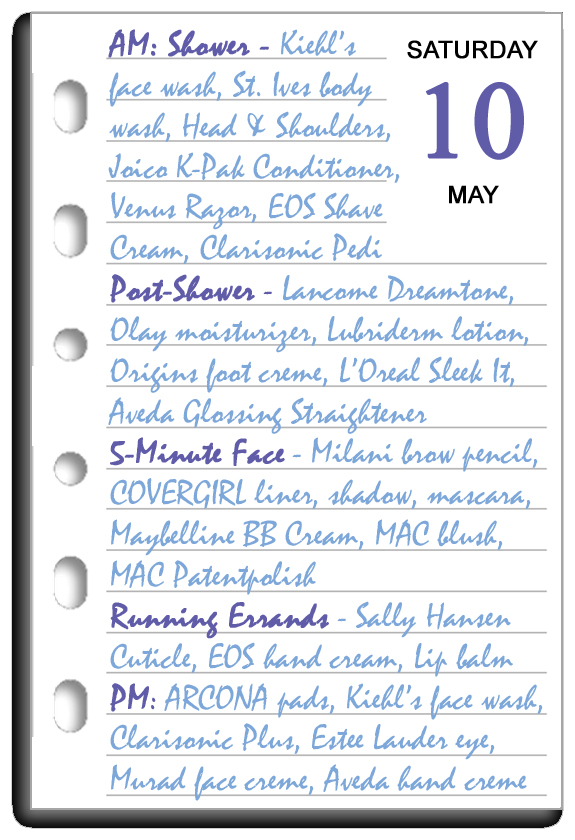 AM: Shower - Kiehl's
face wash, St. Ives body
wash, Head & Shoulders,
Joico K-Pak Conditioner,
Venus Razor, EOS Shave
Cream, Clarisonic Pedi
SATURDAY
10
MAY
Post-Shower - Lancome Dreamtone,
Olay moisturizer, Lubriderm lotion,
Origins foot creme, L'Oreal Sleek It,
Aveda Glossing Straightener
5-Minute Face - Milani brow pencil,
COVERGIRL liner, shadow, mascara,
Maybelline BB Cream, MAC blush,
MAC Patentpolish
Running Errands - Sally Hansen
Cuticle, EOS hand cream, Lip balm
PM: ARCONA pads, Kiehl's face wash,
Clarisonic Plus, Estee Lauder eye,
Murad face creme, Aveda hand creme